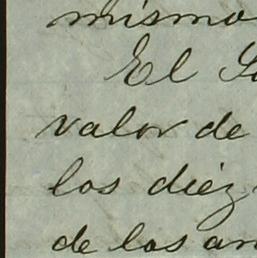 mismo
El
valor de
los diez
de los